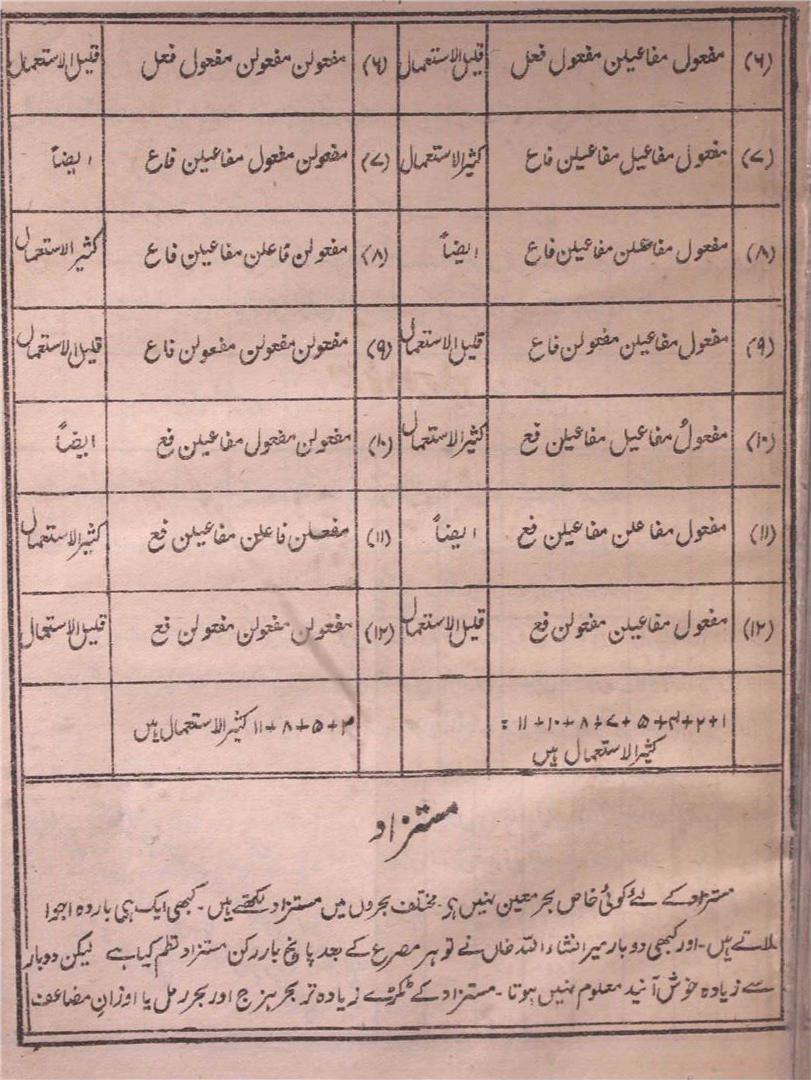 (۶) مفعول مفاعیلن مفعول فعل قلیل الاستعمال (۶) مفعولن مفعولن مفعول فعل قلیل الاستعمال
(۷) مفعول مفاعیل مفاعیلن فاع کثیر الاستعمال (۷) مفعولن مفعول مفاعیلن فاع ایضاً
(۸) مفعول مفاعلن مفاعیلن فاع ایضاً (۸) مفعولن فاعلن مفاعیلن فاع کثیر الاستعمال
(۹) مفعول مفاعیلن مفعولن فاع قلیل الاستعمال (۹) مفعولن مفعولن مفعولن فاع قلیل الاستعمال
(۱۰) مفعولُ مفاعیل مفاعیلن فع کثیر الاستعمال (۱۰) مفعولن مفعول مفاعیلن فع ایضاً
(۱۱) مفعول مفاعلن مفاعیلن فع ایضاً (۱۱) مفعلن فاعلن مفاعیلن فع کثیر الاستعمال
(۱۲) مفعول مفاعیلن مفعولن فع قلیل الاستعمال (۱۲) مفعولن مفعولن مفعولن فع قلیل الاستعمال
۱+۲+۴+۵+۷+۸+۱۰+۱۱ = ۲+۵+۸+۱۱ کثیر الاستعمال ہیں
کثیر الاستعمال ہیں
مستزاد
مستزاد کے لئے کوئی خاص بحر معین نہیں ہی۔ مختلف بحروں میں مستزاد لکھتے ہیں۔ کبھی ایک ہی بار وہ اجزا
لاتے ہیں۔ اور کبھی دو بار میر انشاء اللہ خاں نے تو ہر مصرع کے بعد پانچ بار رکن مستزاد نظم کیا ہے لیکن دو بار
سے زیادہ خوش آئند معلوم نہیں ہوتا۔ مستزاد کے ٹکڑے زیادہ تر بحر ہزج اور بحر رمل یا اوزانِ مضاعف